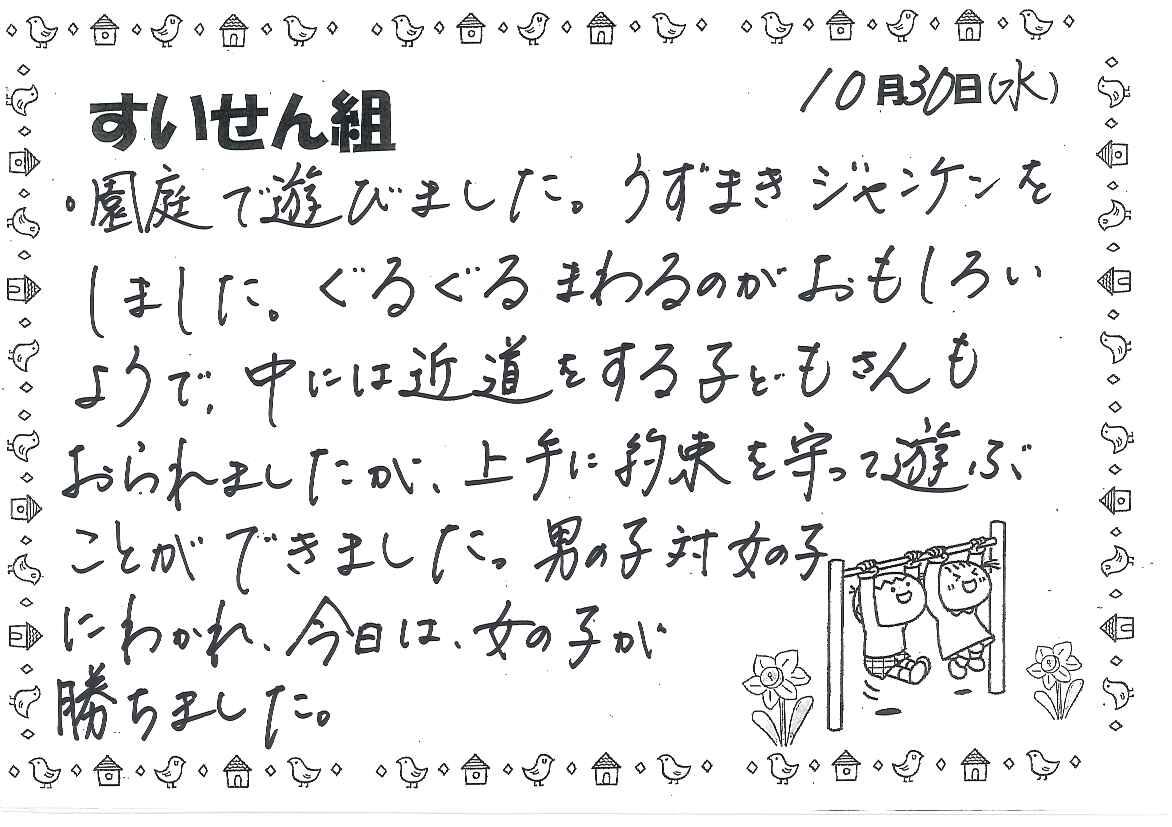 10月30日(水)
すいせん組
・園庭で遊びました。うずまきジャンケンを
しました。ぐるぐるまわるのがおもしろい
ようで、中には近道をする子どもさんも
おられましたが、上手に約束を守って遊ぶ
ことができました。男の子対女の子
にわかれ、今日は、女の子が
勝ちました。